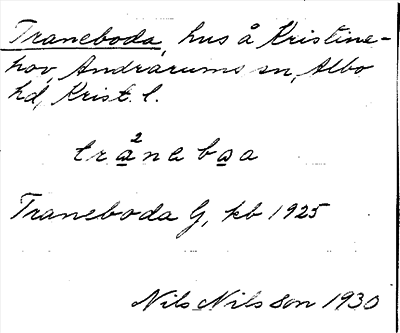 Traneboda, hus å Kristine-
hov, Andrarums sn, Albo
hd, Krist. l.
2
tranebaa
Traneboda G, kb 1925
Nils Nilsson 1930